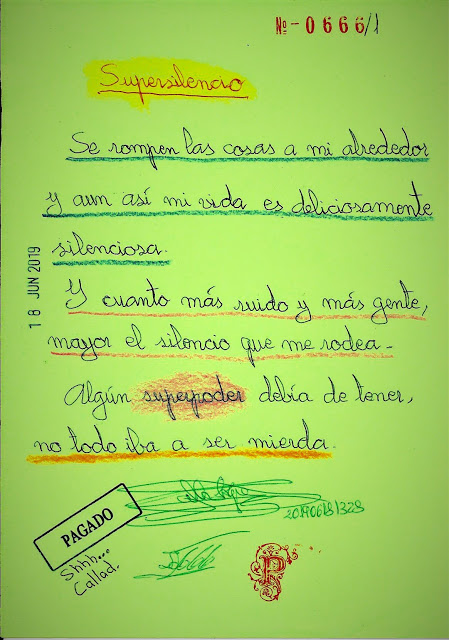 Nº-0666/1
Supersilencio
Se rompen las cosas a mi alrededor
y aun así mi vida es deliciosamente
silenciosa.
Y cuanto más ruido y más gente,
mayor el silencio que me rodea.
Algún superpoder debía de tener,
no todo iba a ser mierda.
18 JUN 2019
PAGADO
Shhh...
Callad.
201906181328
R